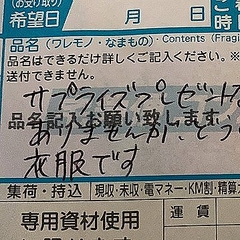 (お受け取り)
希望日 月 日
品名(ワレモノ・なまもの)・Contents (Fragi
品名はできるだけ詳しくご記入ください。※
送付できません。
サプライズプレゼントで
品名記入お願い致します
ありませんが、とう
衣服です
集荷・持込 現収・未収・電マネー・KM割・精算方
専用資材使用 運賃